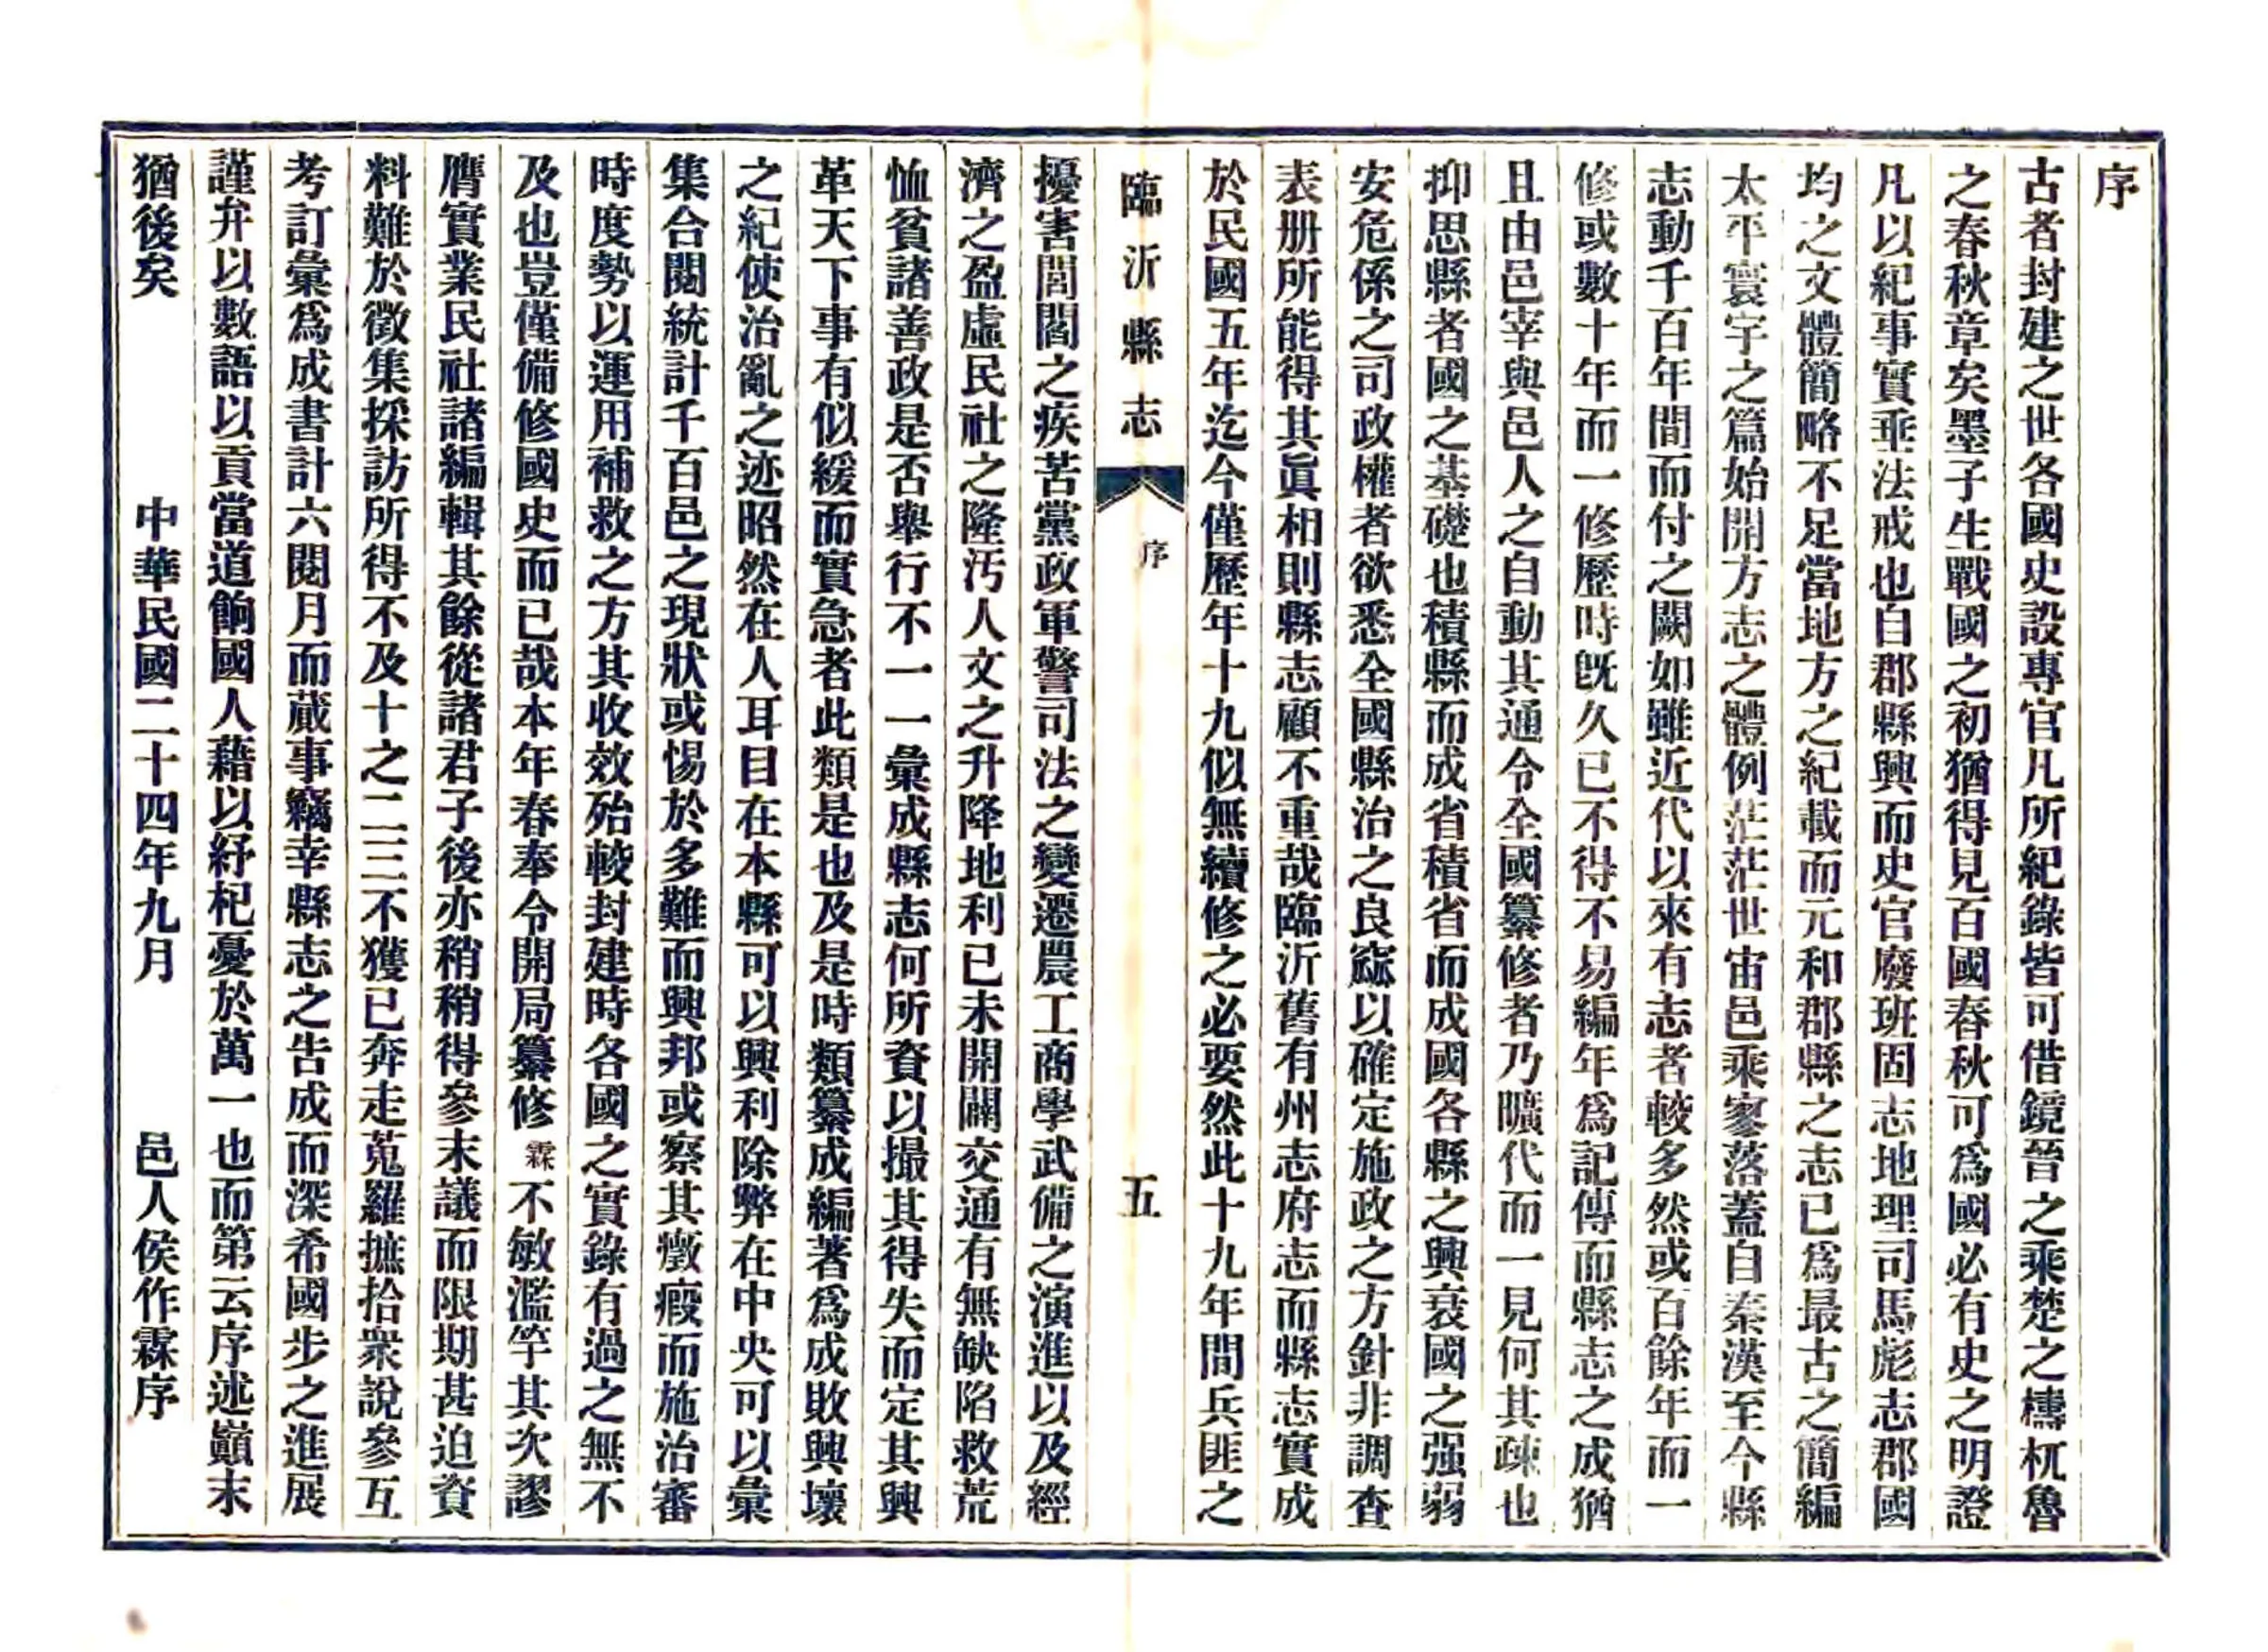 序
古者封建之世各國史設專官凡所紀錄皆可借鏡晉之乘楚之檮杌魯
之春秋章矣墨子生戰國之初猶得見百國春秋可爲國必有史之明證
凡以紀事實垂法戒也自郡縣興而史官廢班固志地理司馬彪志郡國
均之文體簡略不足當地方之紀載而元和郡縣之志已爲最古之簡編
太平寰宇之篇始開方志之體例茫茫世宙邑乘寥落蓋自秦漢至今縣
志動千百年間而付之闕如雖近代以來有志者較多然或百餘年而一
修或數十年而一修歷時旣久已不得不易編年爲記傳而縣志之成猶
且由邑宰與邑人之自動其通令全國纂修者乃曠代而一見何其疎也
抑思縣者國之基礎也積縣而成省積省而成國各縣之興衰國之强弱
安危係之司政權者欲悉全國縣治之良窳以確定施政之方針非調查
表册所能得其眞相則縣志顧不重哉臨沂舊有州志府志而縣志實成
於民國五年迄今僅歷年十九似無續修之必要然此十九年間兵匪之
臨沂縣志
序
五
擾害閭閻之疾苦黨政軍警司法之變遷農工商學武備之演進以及經
濟之盈虛民社之隆汚人文之升降地利已未開闢交通有無缺陷救荒
恤貧諸善政是否舉行不一一彙成縣志何所資以撮其得失而定其興
革天下事有似緩而實急者此類是也及是時類纂成編著爲成敗興壞
之紀使治亂之迹昭然在人耳目在本縣可以興利除弊在中央可以彙
集合閱統計千百邑之現狀或惕於多難而興邦或察其癥瘕而施治審
時度勢以運用補救之方其收效殆較封建時各國之實錄有過之無不
及也豈僅備修國史而已哉本年春奉令開局纂修霖不敏濫竽其次謬
膺實業民社諸編輯其餘從諸君子後亦稍稍得參末議而限期甚迫資
料難於徵集採訪所得不及十之二三不獲已奔走蒐羅摭拾衆說參互
考訂彙爲成書計六閱月而蕆事竊幸縣志之告成而深希國步之進展
謹弁以數語以貢當道餉國人藉以紓杞憂於萬一也而第云序述巔末
猶後矣　中華民國二十四年九月　邑人侯作霖序